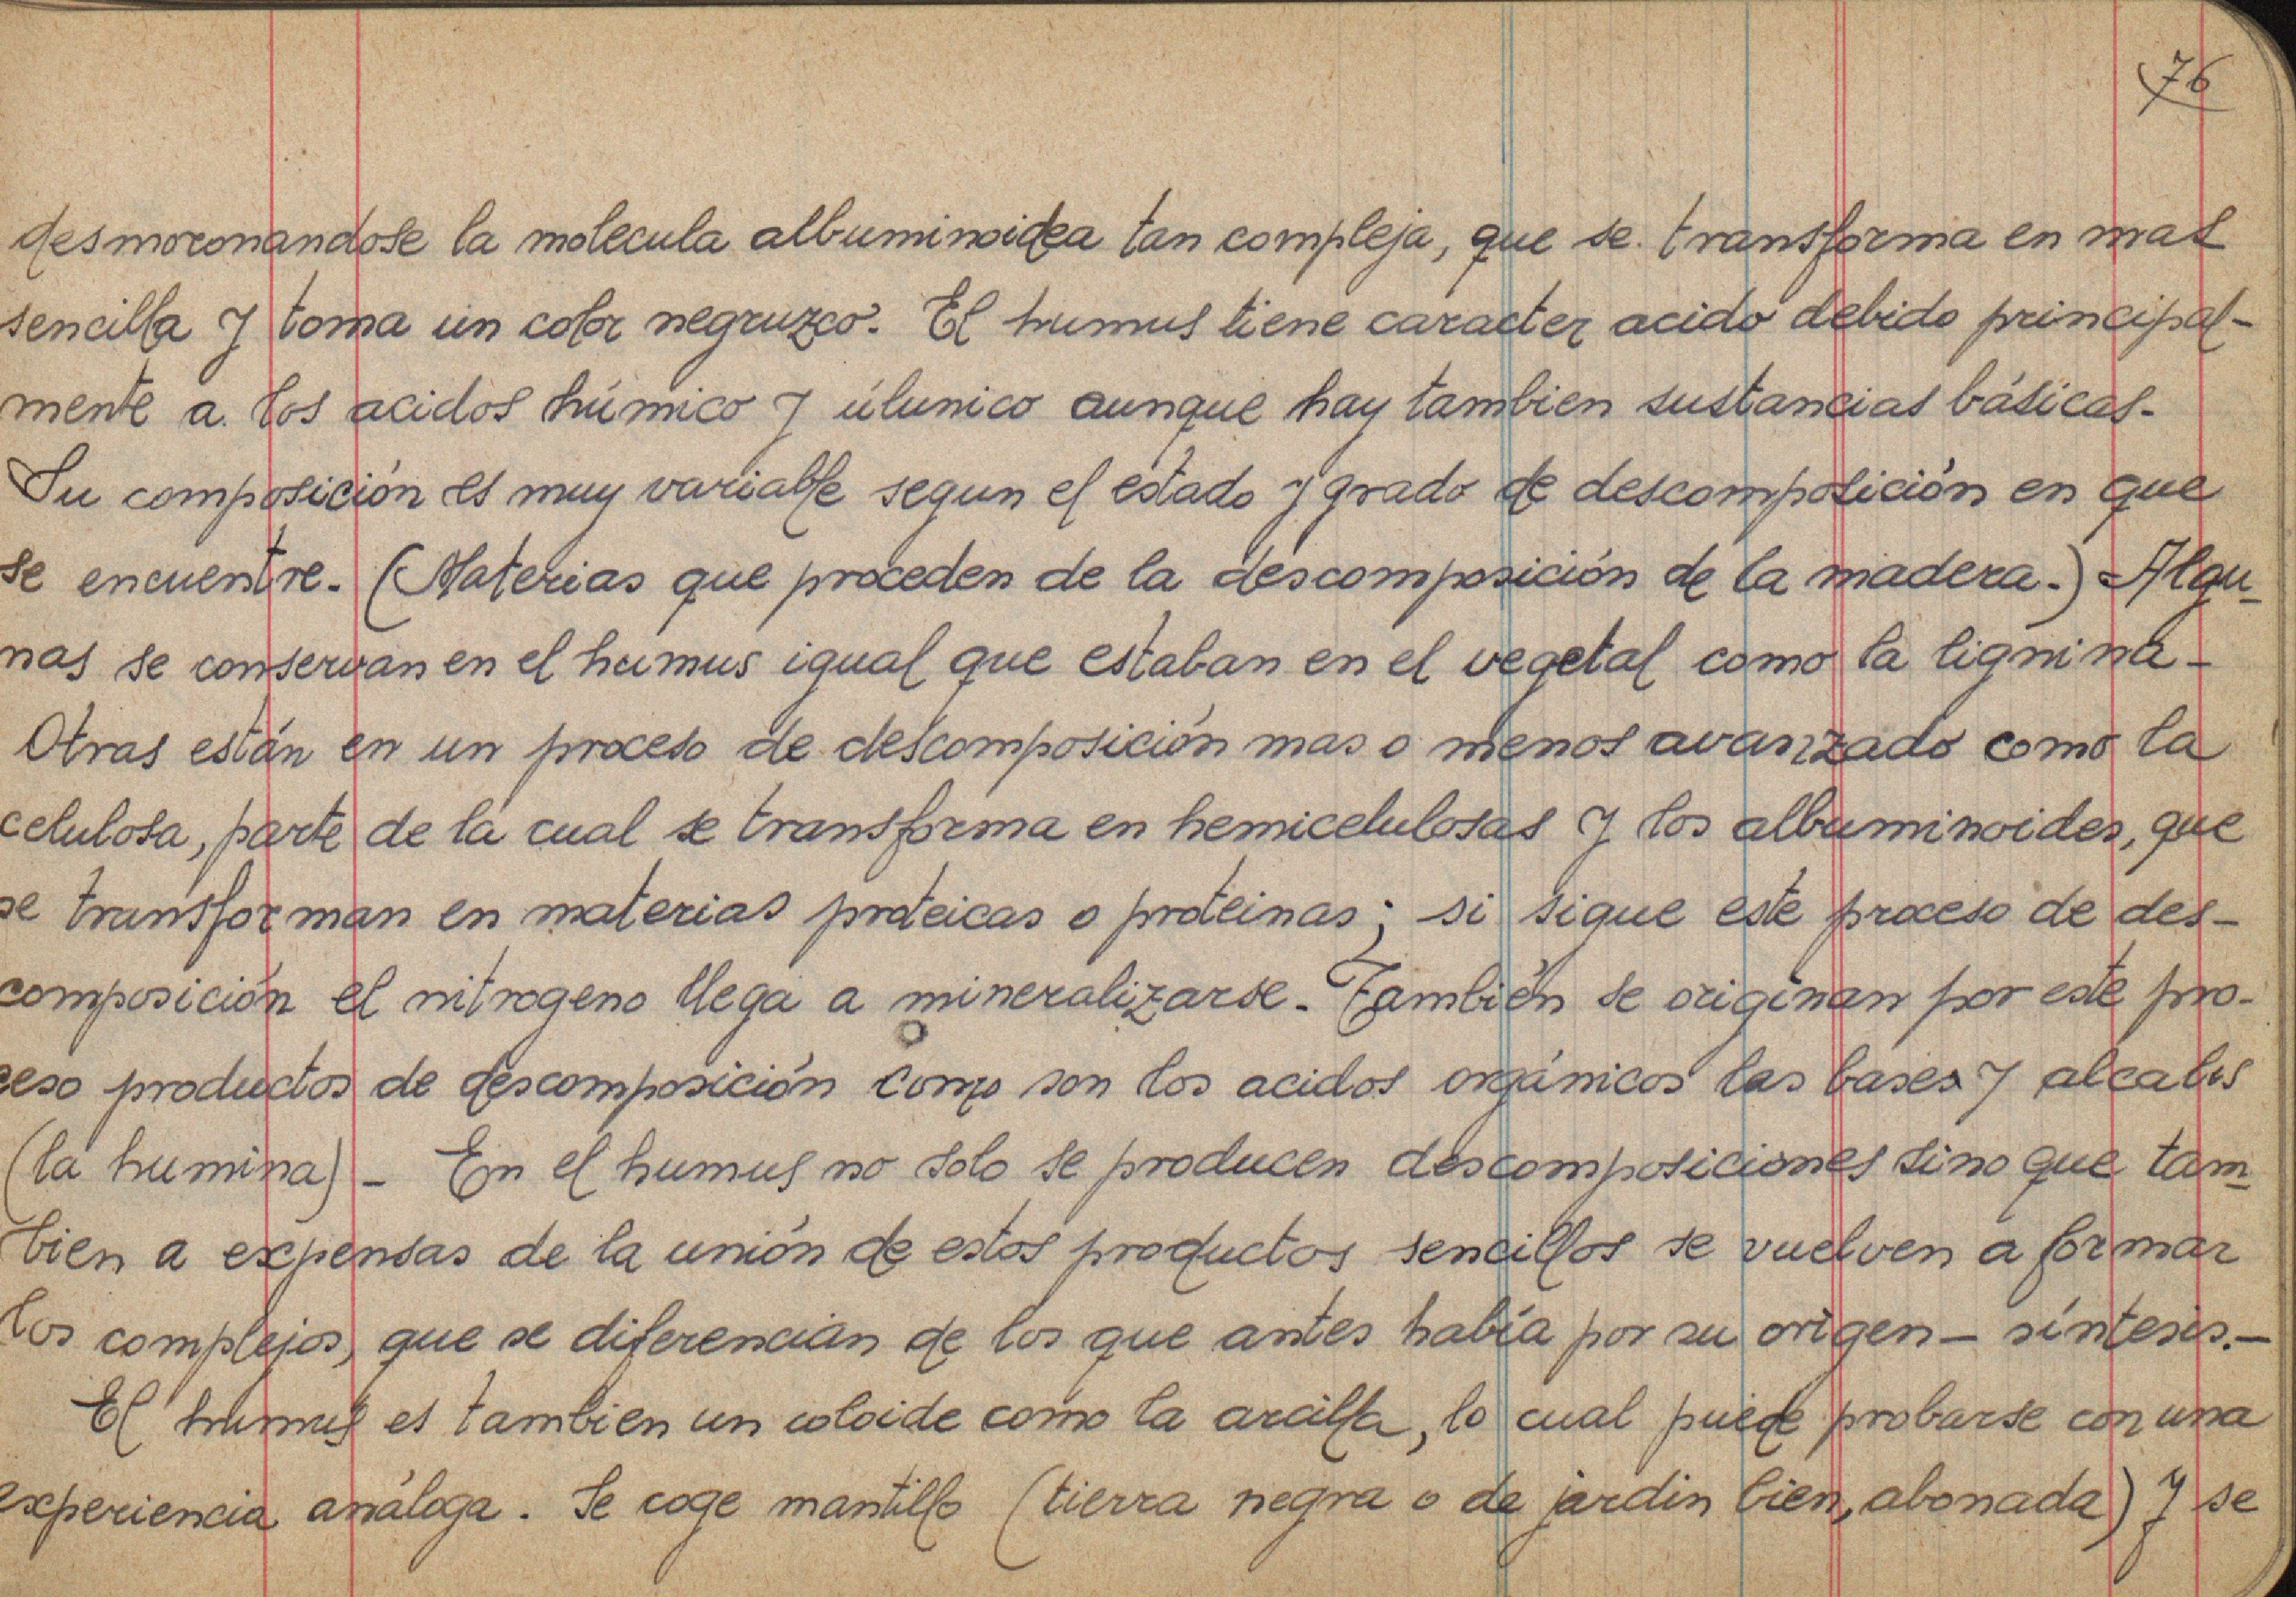 76
desmoronandose la molecula albuminoidea tan compleja, que se transforma en mas
sencilla y toma un color negruzco. El humus tiene caracter acido debido principal-
mente a los acidos húmico y úlunico aunque hay tambien sustancias básicas.
Su composición es muy variable segun el estado y grado de descomposición en que
se encuentre. (Materias que proceden de la descomposición de la madera.) Algu-
nas se conservan en el humus igual que estaban en el vegetal como la lignina-
Otras están en un proceso de descomposición mas o menos avanzado como la
celulosa, parte de la cual se transforma en hemicelulosas y los albuminoides, que
se transforman en materias proteicas o proteinas; si sigue este proceso de des-
composición el nitrogeno llega a mineralizarse. También se originan por este pro-
ceso productos de descomposición como son los acidos orgánicos las bases y alcalis
(la humina) - En el humus no solo se producen descomposiciones sino que tam-
bien a expensas de la unión de estos productos sencillos se vuelven a formar
los complejos, que se diferencian de los que antes había por su origen - síntesis.-
El humus es tambien un coloide como la arcilla, lo cual puede probarse con una
experiencia análoga. Se coge mantillo (tierra negra o de jardin bien, abonada) y se